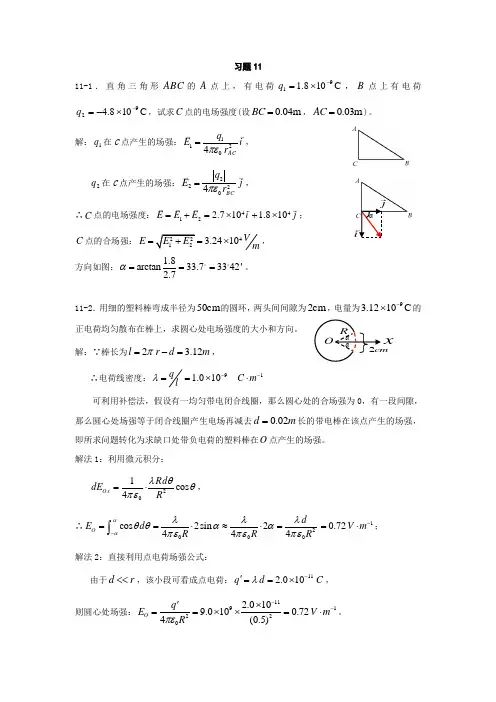 习题11
11-1．直角三角形ABC的A点上，有电荷q₁ = 1.8×10⁻⁹ C，B点上有电荷
q₂ = −4.8×10⁻⁹ C，试求C点的电场强度(设BC = 0.04m，AC = 0.03m)。
解：q₁在C点产生的场强：E⃗₁ = q₁/(4πε₀ r²_AC) i⃗，
q₂在C点产生的场强：E⃗₂ = |q₂|/(4πε₀ r²_BC) j⃗，
∴C点的电场强度：E⃗ = E⃗₁ + E⃗₂ = 2.7×10⁴ i⃗ + 1.8×10⁴ j⃗；
C点的合场强：E = √(E₁² + E₂²) = 3.24×10⁴ V/m，
方向如图：α = arctan 1.8/2.7 = 33.7° = 33°42′。
A
C
B
A
C
B
j⃗
α
i⃗
11-2．用细的塑料棒弯成半径为50cm的圆环，两头间间隙为2cm，电量为3.12×10⁻⁹ C的
正电荷均匀散布在棒上，求圆心处电场强度的大小和方向。
解：∵棒长为l = 2π r − d = 3.12m，
∴电荷线密度：λ = q/l = 1.0×10⁻⁹ C·m⁻¹
R
O
x
2cm
可利用补偿法，假设有一均匀带电闭合线圈，那么圆心处的合场强为0，有一段间隙，
那么圆心处场强等于闭合线圈产生电场再减去d = 0.02m长的带电棒在该点产生的场强，
即所求问题转化为求缺口处带负电荷的塑料棒在O点产生的场强。
解法1：利用微元积分：
dE_Ox = 1/(4πε₀)·λRdθ/R² cosθ，
∴E_O = ∫_{−α}^{α} λ/(4πε₀R) cosθdθ = λ/(4πε₀R)·2sinα ≈ λ/(4πε₀R)·2α = λd/(4πε₀R²) = 0.72V·m⁻¹；
解法2：直接利用点电荷场强公式：
由于d << r，该小段可看成点电荷：q′ = λd = 2.0×10⁻¹¹ C，
则圆心处场强：E_O = q′/(4πε₀R²) = 9.0×10⁹×2.0×10⁻¹¹/(0.5)² = 0.72V·m⁻¹。